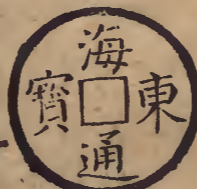 海東通寶